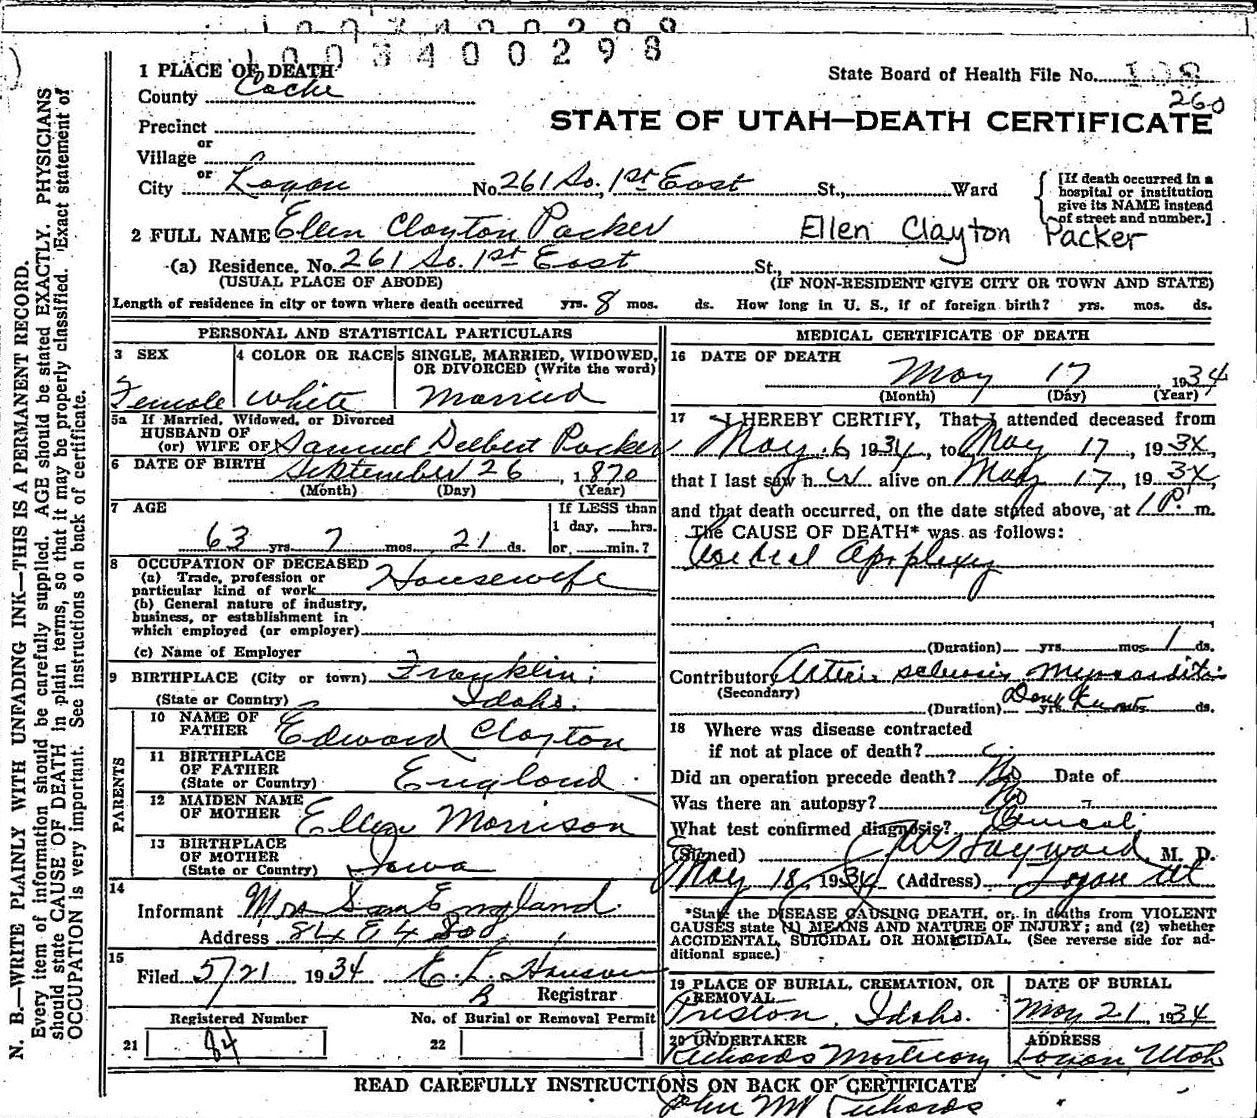 1003400298
1003400298
1 PLACE OF DEATH
State Board of Health File No. 108
County Cache
260
STATE OF UTAH—DEATH CERTIFICATE
Precinct
or
Village
or
City Logan No. 261 So. 1st East St., Ward
[If death occurred in a hospital or institution give its NAME instead of street and number.]
2 FULL NAME Ellen Clayton Packer Ellen Clayton Packer
(a) Residence. No. 261 So. 1st East St.,
(USUAL PLACE OF ABODE) (IF NON-RESIDENT GIVE CITY OR TOWN AND STATE)
Length of residence in city or town where death occurred yrs. 8 mos. ds. How long in U. S., if of foreign birth? yrs. mos. ds.
PERSONAL AND STATISTICAL PARTICULARS
3 SEX 4 COLOR OR RACE 5 SINGLE, MARRIED, WIDOWED,
OR DIVORCED (Write the word)
Female White Married
5a If Married, Widowed, or Divorced
HUSBAND OF
(or) WIFE OF Samuel Delbert Packer
6 DATE OF BIRTH September 26, 1870
(Month) (Day) (Year)
7 AGE If LESS than
1 day, hrs.
63 yrs. 7 mos. 21 ds. or min.?
8 OCCUPATION OF DECEASED
(a) Trade, profession or
particular kind of work Housewife
(b) General nature of industry,
business, or establishment in
which employed (or employer)
(c) Name of Employer
9 BIRTHPLACE (City or town) Franklin,
(State or Country) Idaho.
PARENTS
10 NAME OF
FATHER Edward Clayton
11 BIRTHPLACE
OF FATHER
(State or Country) England
12 MAIDEN NAME
OF MOTHER Ellen Morrison
13 BIRTHPLACE
OF MOTHER
(State or Country) Iowa
14
Informant Mrs Sam England
Address 84 E 4 So
15
Filed 5/21 1934 E. L. Hanson
Registrar
Registered Number No. of Burial or Removal Permit
21 84 22
MEDICAL CERTIFICATE OF DEATH
16 DATE OF DEATH
May 17, 1934
(Month) (Day) (Year)
17 I HEREBY CERTIFY, That I attended deceased from
May 6 1934, to May 17, 1934,
that I last saw h er alive on May 17, 1934,
and that death occurred, on the date stated above, at 1 P. m.
The CAUSE OF DEATH* was as follows:
Apoplexy
(Duration) yrs. mos. 1 ds.
Contributory Arterio sclerosis Myocarditis
(Secondary)
(Duration) Don't Know yrs. mos. ds.
18 Where was disease contracted
if not at place of death?
Did an operation precede death? No Date of
Was there an autopsy? No
What test confirmed diagnosis? Clinical
(Signed) Hayward, M. D.
May 18, 1934 (Address) Logan Ut
*State the DISEASE CAUSING DEATH, or, in deaths from VIOLENT
CAUSES state (1) MEANS AND NATURE OF INJURY; and (2) whether
ACCIDENTAL, SUICIDAL OR HOMICIDAL. (See reverse side for ad-
ditional space.)
19 PLACE OF BURIAL, CREMATION, OR DATE OF BURIAL
REMOVAL
Preston, Idaho. May 21, 1934
20 UNDERTAKER ADDRESS
Richards Mortuary Logan, Utah
READ CAREFULLY INSTRUCTIONS ON BACK OF CERTIFICATE
John M Richards
N. B.—WRITE PLAINLY WITH UNFADING INK—THIS IS A PERMANENT RECORD.
Every item of information should be carefully supplied. AGE should be stated EXACTLY. PHYSICIANS
should state CAUSE OF DEATH in plain terms, so that it may be properly classified. Exact statement of
OCCUPATION is very important. See instructions on back of certificate.